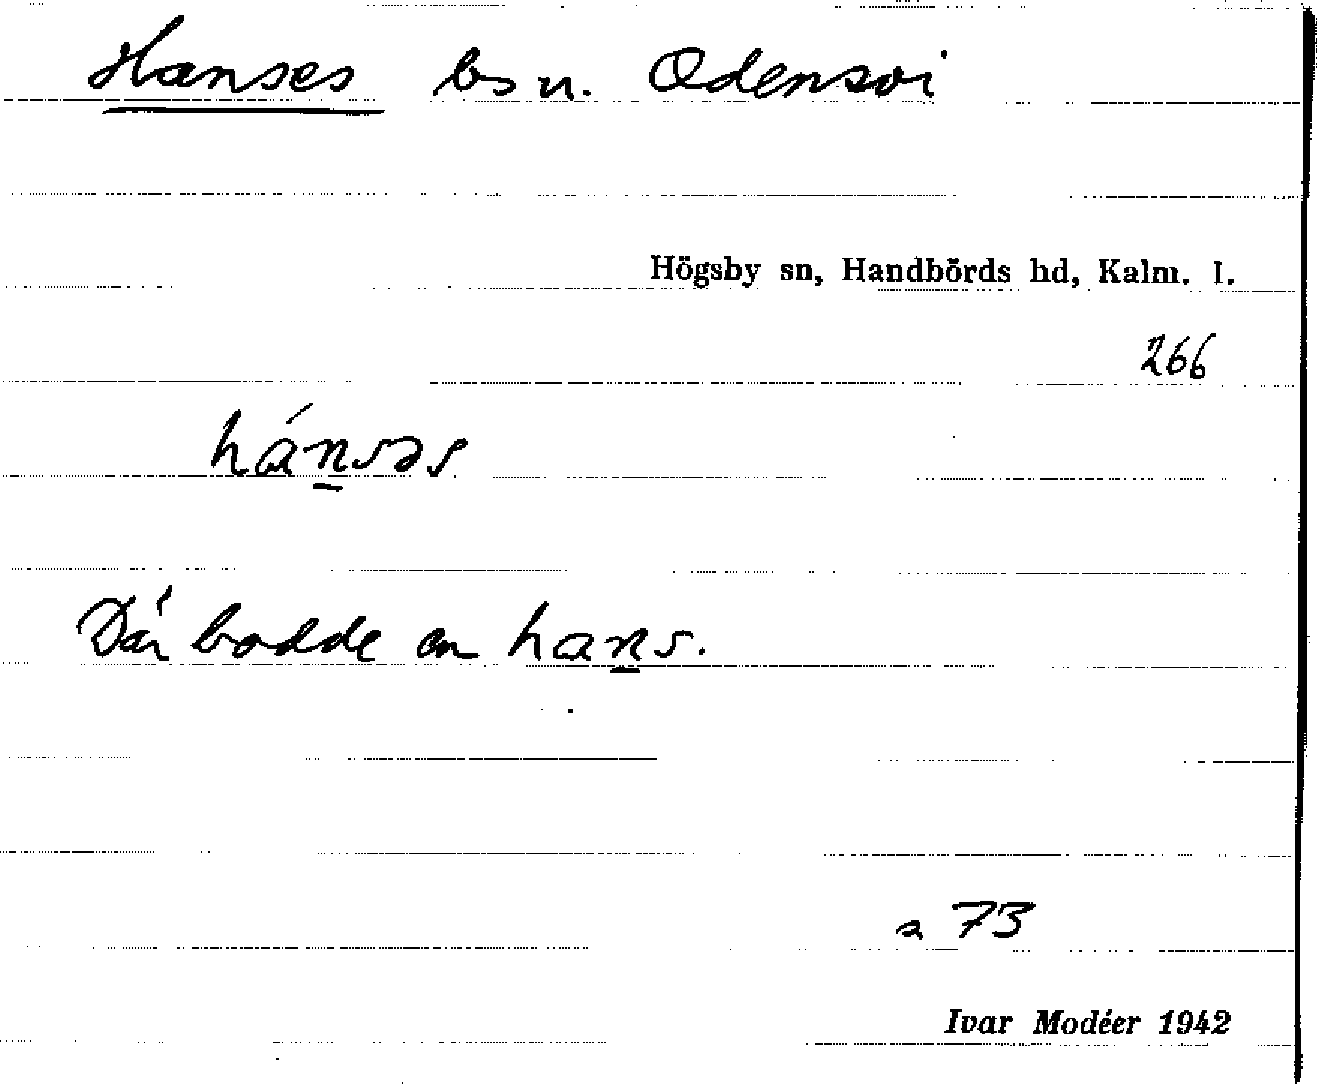 Hanses bs u. Odensvi
Högsby sn, Handbörds hd, Kalm. l.
266
hánsəs
Där bodde en hans.
a 73
Ivar Modéer 1942